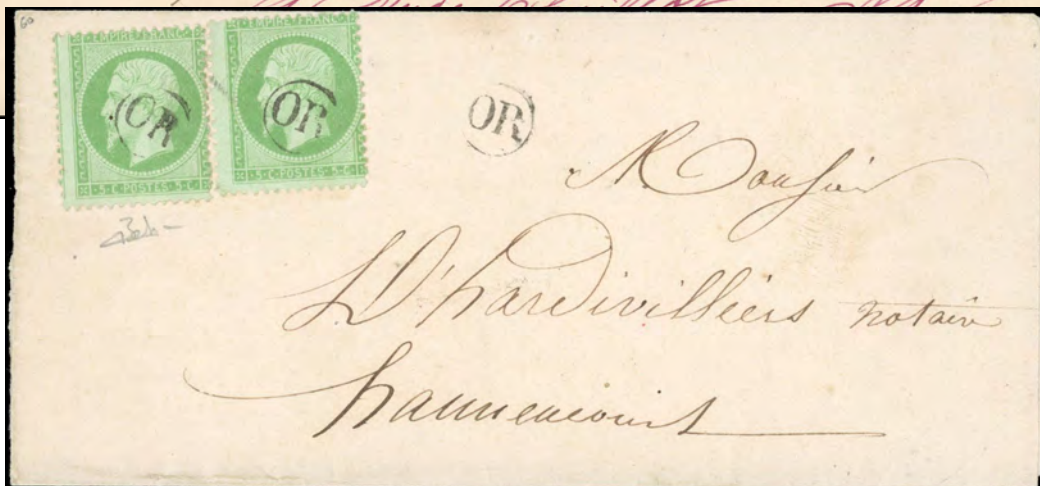 60
EMPIRE FRANC
5 C POSTES 5 C
OR
EMPIRE FRANC
5 C POSTES 5 C
OR
OR
Monsieur
D'hardivilliers notaire
hannencourt